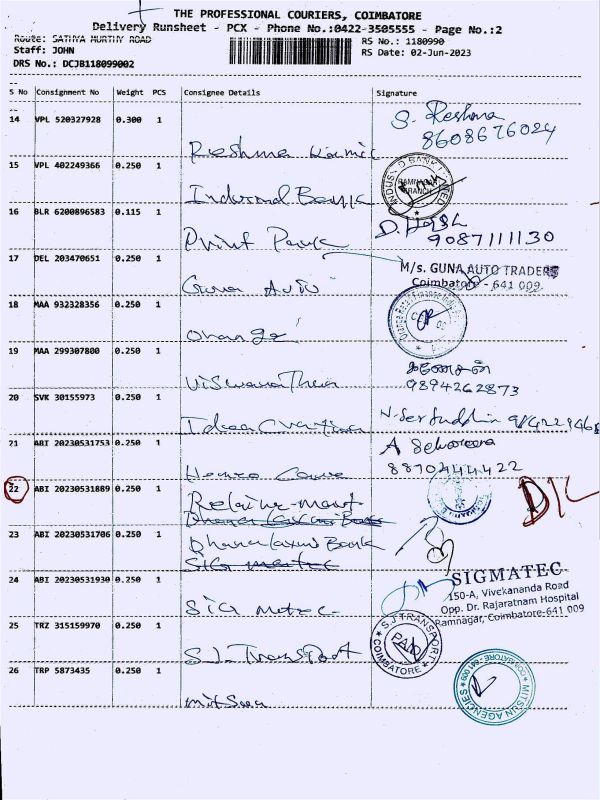 THE PROFESSIONAL COURIERS, COIMBATORE
Delivery Runsheet - PCX - Phone No.:0422-3505555 - Page No.:2
Route: SATHYA MURTHY ROAD
Staff: JOHN
DRS No.: DCJB118099002
RS No.: 1180990
RS Date: 02-Jun-2023
S No Consignment No Weight PCS Consignee Details Signature
14 VPL 520327928 0.300 1
S. Reshma
8608676024
Reshma
15 VPL 402249366 0.250 1
INDUSIND BANK LIMITED
RAMNAGAR
BRANCH
Indusind Bank
16 BLR 6200896583 0.115 1
9087111130
Print Park
17 DEL 203470651 0.250 1
M/s. GUNA AUTO TRADERS
Coimbatore - 641 009.
Guna Auto
18 MAA 932328356 0.250 1
Orange
19 MAA 299307800 0.250 1
கணேசன்
9894262873
Viswanathan
20 SVK 30155973 0.250 1
Idea
21 ABI 20230531753 0.250 1
A
8870444422
22 ABI 20230531889 0.250 1
D/L
Dhana Laxmi Bank
23 ABI 20230531706 0.250 1
Dhanalaxmi Bank
24 ABI 20230531930 0.250 1
SIGMATEC
150-A, Vivekananda Road
Opp. Dr. Rajaratnam Hospital
Ramnagar, Coimbatore-641 009
Sig
25 TRZ 315159970 0.250 1
S.J TRANSPORT
PAID
COIMBATORE
S.J. Transport
26 TRP 5873435 0.250 1
MITSUN AGENCIES
COIMBATORE - 641 009